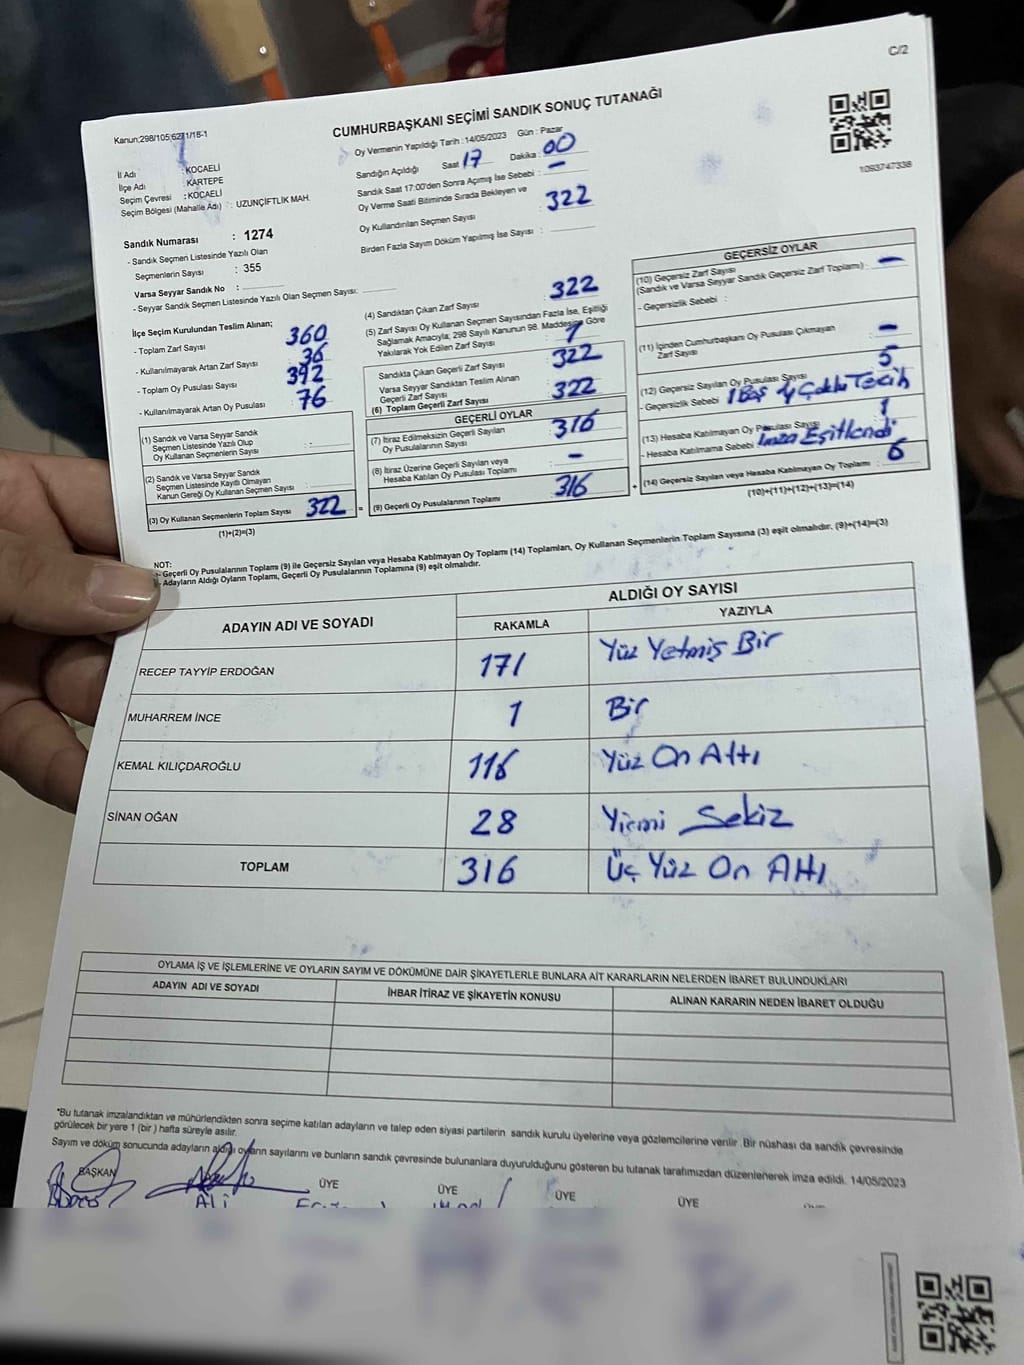 C/2
Kanun:298/105;6271/16-1
CUMHURBAŞKANI SEÇİMİ SANDIK SONUÇ TUTANAĞI
1093747338
İl Adı : KOCAELİ
İlçe Adı : KARTEPE
Seçim Çevresi : KOCAELİ
Seçim Bölgesi (Mahalle Adı) : UZUNÇİFTLİK MAH.
Oy Vermenin Yapıldığı Tarih : 14/05/2023 Gün : Pazar
Sandığın Açıldığı Saat 17 Dakika : 00
Sandık Saat 17:00'den Sonra Açımış İse Sebebi : -
Oy Verme Saati Bitiminde Sırada Bekleyen ve
Oy Kullandırılan Seçmen Sayısı : 322
Birden Fazla Sayım Döküm Yapılmış İse Sayısı :
Sandık Numarası : 1274
- Sandık Seçmen Listesinde Yazılı Olan
Seçmenlerin Sayısı : 355
Varsa Seyyar Sandık No :
- Seyyar Sandık Seçmen Listesinde Yazılı Olan Seçmen Sayısı:
İlçe Seçim Kurulundan Teslim Alınan;
- Toplam Zarf Sayısı : 360
- Kullanılmayarak Artan Zarf Sayısı : 36
- Toplam Oy Pusulası Sayısı : 392
- Kullanılmayarak Artan Oy Pusulası : 76
(1) Sandık ve Varsa Seyyar Sandık
Seçmen Listesinde Yazılı Olup
Oy Kullanan Seçmenlerin Sayısı : -
(2) Sandık ve Varsa Seyyar Sandık
Seçmen Listesinde Kayıtlı Olmayan
Kanun Gereği Oy Kullanan Seçmen Sayısı :
(3) Oy Kullanan Seçmenlerin Toplam Sayısı 322 =
(1)+(2)=(3)
(4) Sandıktan Çıkan Zarf Sayısı : 322
(5) Zarf Sayısı Oy Kullanan Seçmen Sayısından Fazla İse, Eşitliği
Sağlamak Amacıyla; 298 Sayılı Kanunun 98. Maddesine Göre
Yakılarak Yok Edilen Zarf Sayısı :
Sandıkta Çıkan Geçerli Zarf Sayısı : 322
Varsa Seyyar Sandıktan Teslim Alınan
Geçerli Zarf Sayısı :
(6) Toplam Geçerli Zarf Sayısı : 322
GEÇERLİ OYLAR
(7) İtiraz Edilmeksizin Geçerli Sayılan
Oy Pusulalarının Sayısı : 316
(8) İtiraz Üzerine Geçerli Sayılan veya
Hesaba Katılan Oy Pusulası Toplamı : -
(9) Geçerli Oy Pusulalarının Toplamı 316 +
GEÇERSİZ OYLAR
(10) Geçersiz Zarf Sayısı
(Sandık ve Varsa Seyyar Sandık Geçersiz Zarf Toplamı) : -
- Geçersizlik Sebebi :
(11) İçinden Cumhurbaşkanı Oy Pusulası Çıkmayan
Zarf Sayısı : -
(12) Geçersiz Sayılan Oy Pusulası Sayısı : 5
- Geçersizlik Sebebi 1 Boş 4 Çoklu Tercih
(13) Hesaba Katılmayan Oy Pusulası Sayısı : 1
- Hesaba Katılmama Sebebi İmza Eşitlendi
(14) Geçersiz Sayılan veya Hesaba Katılmayan Oy Toplamı : 6
(10)+(11)+(12)+(13)=(14)
NOT:
- Geçerli Oy Pusulalarının Toplamı (9) ile Geçersiz Sayılan veya Hesaba Katılmayan Oy Toplamı (14) Toplamları, Oy Kullanan Seçmenlerin Toplam Sayısına (3) eşit olmalıdır. (9)+(14)=(3)
- Adayların Aldığı Oyların Toplamı, Geçerli Oy Pusulalarının Toplamına (9) eşit olmalıdır.
ADAYIN ADI VE SOYADI ALDIĞI OY SAYISI
RAKAMLA YAZIYLA
RECEP TAYYİP ERDOĞAN 171 Yüz Yetmiş Bir
MUHARREM İNCE 1 Bir
KEMAL KILIÇDAROĞLU 116 Yüz On Altı
SİNAN OĞAN 28 Yirmi Sekiz
TOPLAM 316 Üç Yüz On Altı
OYLAMA İŞ VE İŞLEMLERİNE VE OYLARIN SAYIM VE DÖKÜMÜNE DAİR ŞİKAYETLERLE BUNLARA AİT KARARLARIN NELERDEN İBARET BULUNDUKLARI
ADAYIN ADI VE SOYADI İHBAR İTİRAZ VE ŞİKAYETİN KONUSU ALINAN KARARIN NEDEN İBARET OLDUĞU
*Bu tutanak imzalandıktan ve mühürlendikten sonra seçime katılan adayların ve talep eden siyasi partilerin sandık kurulu üyelerine veya gözlemcilerine verilir. Bir nüshası da sandık çevresinde
görülecek bir yere 1 (bir) hafta süreyle asılır.
Sayım ve döküm sonucunda adayların aldığı oyların sayılarını ve bunların sandık çevresinde bulunanlara duyurulduğunu gösteren bu tutanak tarafımızdan düzenlenerek imza edildi. 14/05/2023
BAŞKAN ÜYE ÜYE ÜYE ÜYE
ALİ